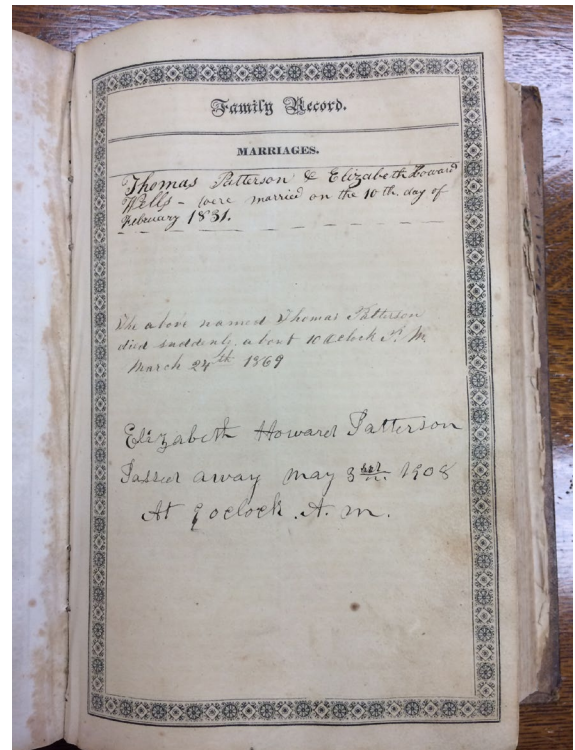 Family Record.
MARRIAGES.
Thomas Patterson & Elizabeth Howard
Wells - were married on the 10th. day of
February 1831.
The above named Thomas Patterson
died suddenly about 10 oclock P. M.
March 24th 1869
Elizabeth Howard Patterson
Passed away May 3 1908
At oclock. A. m.